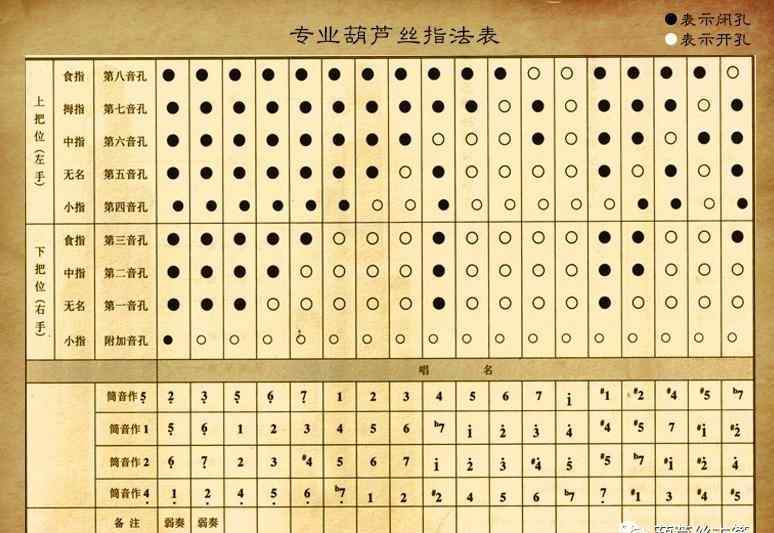 专业葫芦丝指法表
●表示闭孔
○表示开孔
上把位(左手)
食指 第八音孔
拇指 第七音孔
中指 第六音孔
无名 第五音孔
小指 第四音孔
下把位(右手)
食指 第三音孔
中指 第二音孔
无名 第一音孔
小指 附加音孔
唱名
筒音作5̣ 2̣ 3̣ 5̣ 6̣ 7̣ 1 2 3 4 5 6 7 i #1 #2 #4 #5 b7
筒音作1 5̣ 6̣ 1 2 3 4 5 6 b7 i 2̇ 3̇ 4̇ #4 #5 7 #i #2̇
筒音作2 6̣ 7̣ 2 3 #4 5 6 7 i 2̇ 3̇ #4̇ 5̇ #5 b7 #i #2̇ 4̇
筒音作4̣ 1̣ 2̣ 4̣ 5̣ 6̣ b7̣ 1 2 #2 4 5 6 b7 7̣ #1 3 #4 #5
备注 弱奏 弱奏